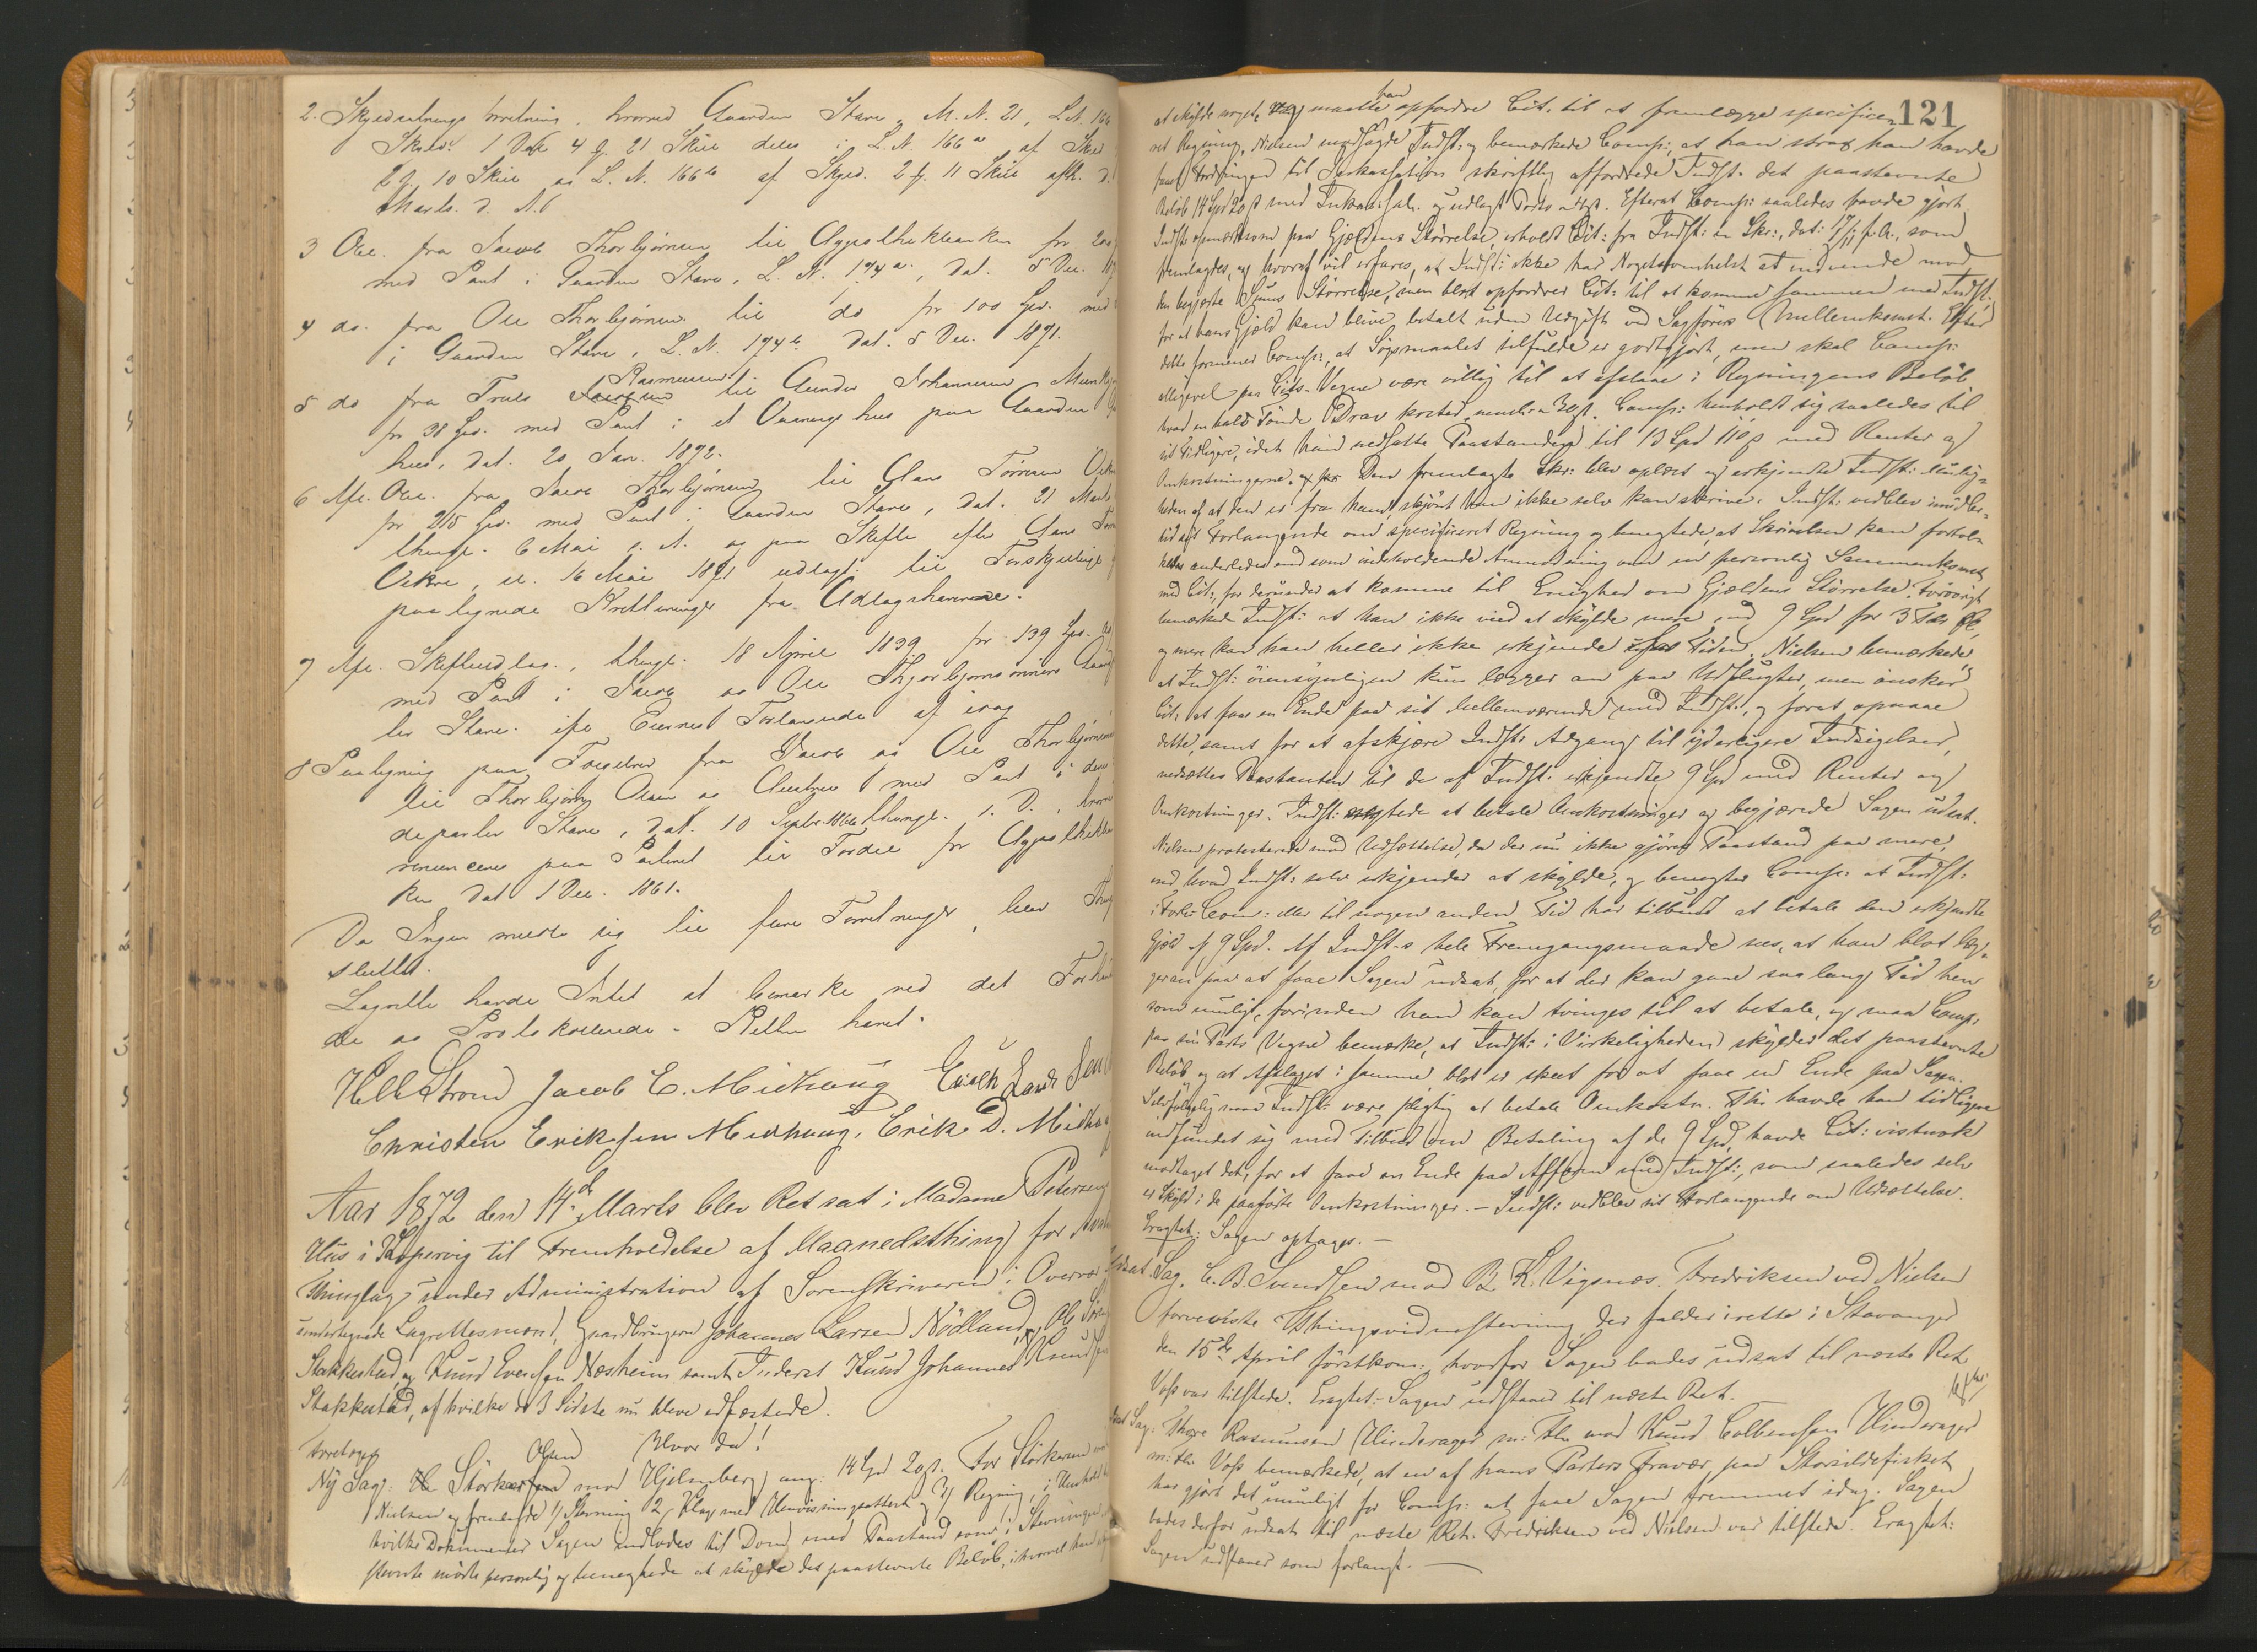 2. Skyldsætnings forretning, hvorved Gaarden Stave, M. N. 21, L.N. 166
Skyld: 1 Dal 4 ƒ 21 Skil deles i L. N. 166a af Skyld
2 ƒ 10 Skil og L. N. 166b af Skyld. 2 ƒ. 11 Skil afh. d.
Marts d. A.
3 Obl. fra Jacob Thorbjørnsen til Hypothekbanken for 200
med Pant i Gaarden Stave, L. N. 174a, dat. 5 Dec. 187
4 do. fra Ole Thorbjørnsen til do for 100 Spd. med
i Gaarden Stave, L. N. 174b dat. 5 Dec. 1871.
5 do fra Truls Rasmussen til Gunder Johannesen
for 38 Spd. med Pant i et Vaaningshus paa Gaarden
hus, dat. 20 Jan. 1872.
6 Afl. Obl. fra Jacob Thorbjørnsen til Claus Tørresen
for 215 Spd. med Pant i Gaarden Stave, dat. 21 Marts
thingl. 6 Mai s. A. og paa Skifte efter Claus
sl. 16 Mai 1871 udlagt til Forskjellige
paalignede Kvitteringer fra Udlagshaverne.
7 Afl. Skifteudlæg, thingl. 18 April 1839 for 139 Spd.
med Pant i Jacob og Ole Thorbjørnsønners
ler Stave. ifø Eiernes Forlangende af idag
8 Paategning paa Føderaad fra Jacob og Ole Thorbjørnsen
til Thorbjørn Olsen og Hustru med Pant i
departer Stave, dat. 10 Septbr. 1866 thingl. s. D.,
renuncerer paa Prioritet til Fordel for Hypothekban
ken dat 1 Dec. 1861.
Da Ingen meldte sig til flere Forretninger, blev
sluttet.
Lagrette havde Intet at bemærke ved det
de og Protokollerede. Retten hævet.
Strøm Jacob E. Midhaug Erich
Christen Eriksen Midhaug, Erik D.
Aar 1872 den 14de Marts blev Ret sat i Madame Petersens
Hus i Kopervig til Fremholdelse af Maanedsthing for
Thinglag under Administration af Sorenskriveren i Overvær
undertegnede Lagrettesmænd, Gaardbrugere Johannes Larsen Nødland, Ole
Stakkestad, og Knud Evensen Næsheim samt Inderst Knud Johannes Knudsen
Stakkestad, af hvilke de 3 Sidste nu bleve edfæstede.
Foretoges Olsen Hvor da!
Ny Sag: Størkersen mod Hjelmberg ang: 14 Spd 20 s. For Størkersen
Nielsen og fremlagde 1/ Stevning 2/ Klage med Henvisningsattest og 3/ Regning, i
hvilke Dokumenter Sagen indlodes til Dom med Paastand som i Stevningen
stevnte mødte personlig og benegtede at skylde det paastevnte Beløb, ihvorvel han
121
at skylde noget, maatte han opfordre Cit. til at fremlægge specifice-
ret Regning. Nielsen modsagde Indst. og bemærkede Comp:, at han strax han havde
faaet Fordringen til Inkassation skriftlig affordrede Indst. det paastevnte
Beløb 14 Spd 20 s med og udlagt Porto. Efterat Comp: saaledes havde gjort
Indst opmærksom paa Gjældens Størrelse, erholdt Cit: fra Indst: en Skr:, dat: 17/11 f.A., som
fremlagdes, og hvoraf vil erfares, at Indst: ikke har Nogetsomhelst at indvende mod
den begjærte Sums Størrelse, men blot opfordrer Cit: til at komme sammen med Indst.
for at hans Gjæld kan blive betalt uden Udgift ved Sagførers Mellemkomst. Efter
dette formener Comp:, at Søgsmaalet tilfulde er godtgjort, men skal Comp:
alligevel paa Cits. Vegne være villig til at afslaae i Regningens Beløb
hvad en halv Tønde Drav kostede nemlig 30 s. Comp: henholdt sig saaledes til
sit Tidligere, idet han nedsatte Paastanden til 13 Spd 110 s med Renter og
Omkostningerne. Den fremlagte Skr: blev oplæst og erkjendte Indst: Mulig-
heden af at den er fra ham skjønt han ikke selv kan skrive. Indst: vedblev imidler-
tid sit Forlangende om specificeret Regning og benegtede, at Skrivelsen kan fortol-
kes anderledes end som indeholdende Anmodning om en personlig Sammenkomst
med Cit:, for derunder at komme til Enighed om Gjældens Størrelse. Forøvrigt
bemærkede Indst: at han ikke ved at skylde mere end 9 Spd for 3 Tdr
og mere kan han heller ikke erkjende Tiden. Nielsen bemærkede
at Indst: øiensynligen kun lægger an paa Udflugter, men ønsker
Cit: at faae en Ende paa sit Mellemværende med Indst:, og forat opnaae
dette, samt for at afskjære Indst: Adgang til yderligere Indsigelser,
nedsættes Paastanden til de af Indst: erkjendte 9 Spd med Renter og
Omkostninger. Indst: negtede at betale Omkostninger og begjærede Sagen udsat.
Nielsen protesterede mod Udsættelse, da der nu ikke gjøres Paastand paa mere,
end hvad Indst: selv erkjender at skylde, og benegter Comp: at Indst:
i Forl: Com: eller til nogen anden Tid har tilbudt at betale den erkjendte
Gjæld af 9 Spd. Af Indst-s hele Fremgangsmaade sees, at han blot læg-
ger an paa at faae Sagen udsat, for at der kan gaae saa lang Tid hen
som muligt, forinden han kan tvinges til at betale, og maa Comp:
paa sin Parts Vegne bemærke, at Indst: i Virkeligheden skylder det paastevnte
Beløb og at Afslaget i samme blot er skeet for at faae en Ende paa Sagen.
Selvfølgelig maa Indst: være pligtig at betale Omkostn. Thi havde han tidligere
indfundet sig med Tilbud om Betaling af de 9 Spd, havde Cit: vistnok
modtaget det, for at faae en Ende paa Affæren med Indst:, som saaledes selv
er Skyld i de paaførte Omkostninger. – Indst: vedblev sit Forlangende om Udsættelse.
Eragtet: Sagen optages. –
Udsat Sag. C. B. Svendsen mod B. K. Vigenæs. Fredriksen ved Nielsen
foreviste Thingsvidnestevning der falder irette i Stavanger
den 15de April førstkom:, hvorfor Sagen bades udsat til næste Ret
Voss var tilstede. Eragtet: Sagen udstaaer til næste Ret.
Udsat Sag: Thore Rasmussen Hinderager m: Fl: mod Knud Colbensen Hinderager
m: Fl: Voss bemærkede, at en af hans Parters Fravær paa Storsildefisket
har gjort det umuligt for Comp: at faae Sagen fremmet idag. Sagen
bades derfor udsat til næste Ret. Fredriksen ved Nielsen var tilstede. Eragtet:
Sagen udstaaer som forlangt. –